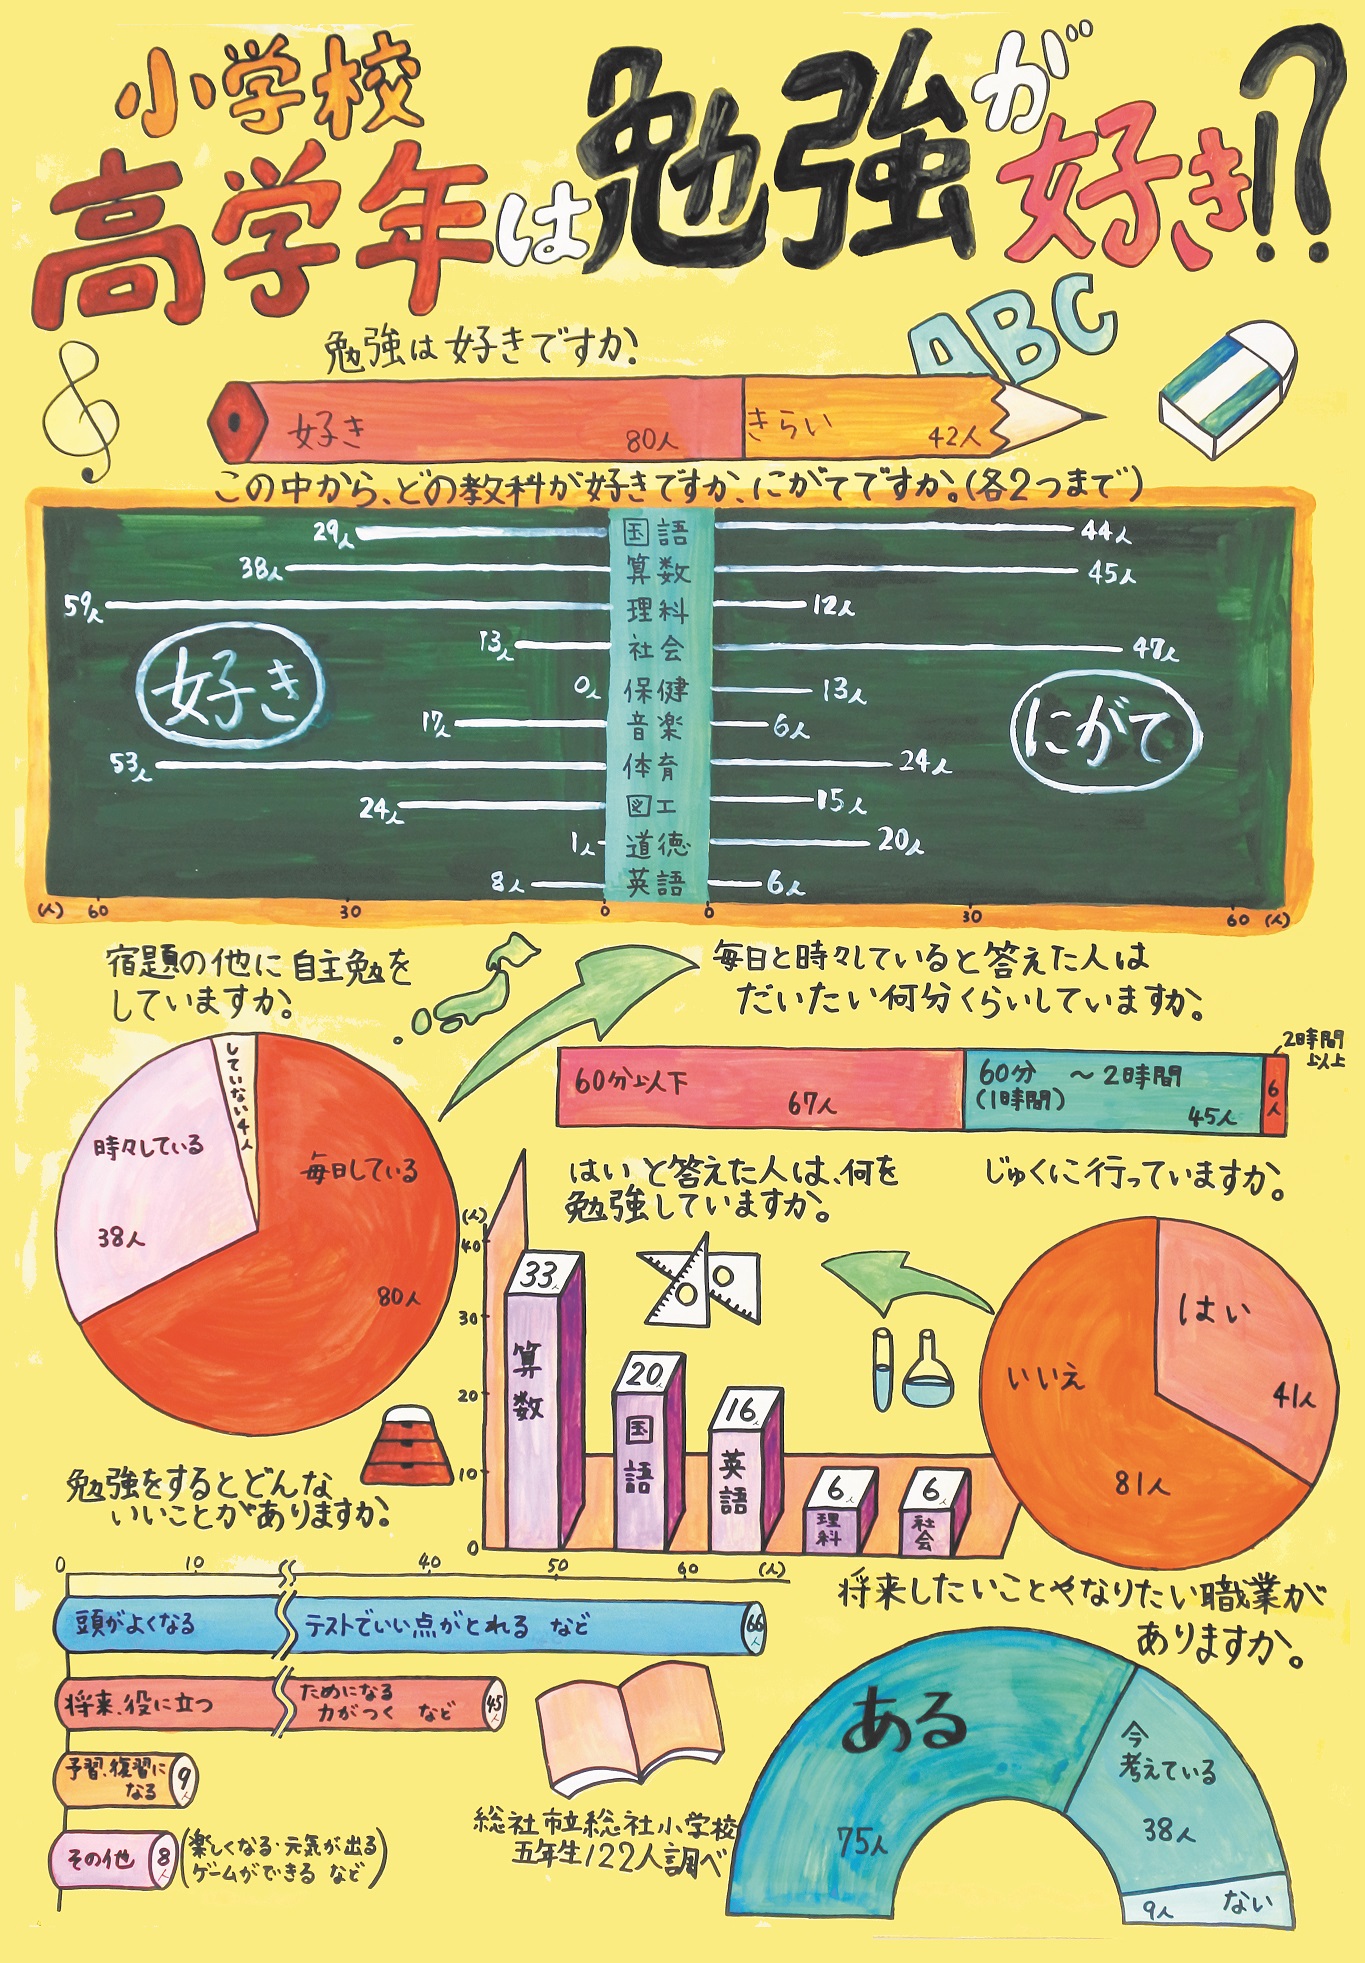 小学校
高学年は勉強が好き!?
ABC
勉強は好きですか。
好き 80人 きらい 42人
この中から、どの教科が好きですか、にがてですか。(各2つまで)
好き
にがて
29人 国語 44人
38人 算数 45人
59人 理科 12人
13人 社会 47人
0人 保健 13人
17人 音楽 6人
53人 体育 24人
24人 図工 15人
1人 道徳 20人
8人 英語 6人
(人) 60 30 0 0 30 60 (人)
宿題の他に自主勉を
していますか。
していない4人
時々している
38人
毎日している
80人
毎日と時々していると答えた人は
だいたい何分くらいしていますか。
60分以下
67人
60分 ～2時間
(1時間)
45人
2時間
以上
6人
じゅくに行っていますか。
はい
41人
いいえ
81人
はいと答えた人は、何を
勉強していますか。
(人)
40
30
20
10
0
33人
算数
20人
国語
16人
英語
6人
理科
6人
社会
勉強をするとどんな
いいことがありますか。
0 10 40 50 60 (人)
頭がよくなる テストでいい点がとれる など 66人
将来、役に立つ ためになる
力がつく など 45人
予習、復習に
なる 9人
その他 8人
(楽しくなる・元気が出る
ゲームができる など)
将来したいことやなりたい職業が
ありますか。
ある
75人
今
考えている
38人
ない
9人
総社市立総社小学校
五年生122人調べ